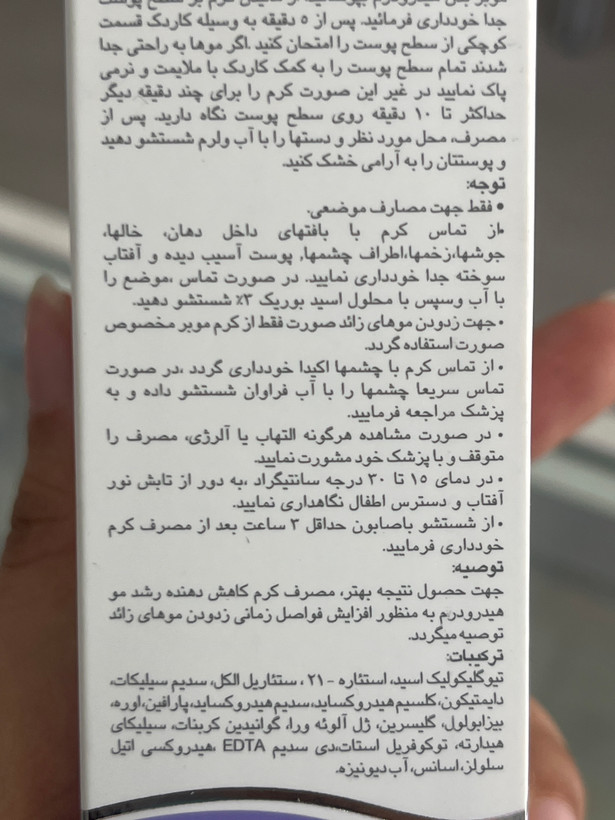 جدا خودداری فرمائید. پس از ۵ دقیقه به وسیله کاردک قسمت
کوچکی از سطح پوست را امتحان کنید .اگر موها به راحتی جدا
شدند تمام سطح پوست را به کمک کاردک با ملایمت و نرمی
پاک نمایید در غیر این صورت کرم را برای چند دقیقه دیگر
حداکثر تا ۱۰ دقیقه روی سطح پوست نگاه دارید. پس از
مصرف، محل مورد نظر و دستها را با آب ولرم شستشو دهید
و پوستتان را به آرامی خشک کنید.
توجه:
• فقط جهت مصارف موضعی.
•از تماس کرم با بافتهای داخل دهان، خالها،
جوشها،زخمها،اطراف چشمها, پوست آسیب دیده و آفتاب
سوخته جدا خودداری نمایید. در صورت تماس ،موضع را
با آب وسپس با محلول اسید بوریک ۳٪ شستشو دهید.
•جهت زدودن موهای زائد صورت فقط از کرم موبر مخصوص
صورت استفاده گردد.
• از تماس کرم با چشمها اکیدا خودداری گردد ،در صورت
تماس سریعا چشمها را با آب فراوان شستشو داده و به
پزشک مراجعه فرمایید.
• در صورت مشاهده هرگونه التهاب یا آلرژی، مصرف را
متوقف و با پزشک خود مشورت نمایید.
• در دمای ۱۵ تا ۳۰ درجه سانتیگراد ،به دور از تابش نور
آفتاب و دسترس اطفال نگاهداری نمایید.
• از شستشو باصابون حداقل ۳ ساعت بعد از مصرف کرم
خودداری فرمایید.
توصیه:
جهت حصول نتیجه بهتر، مصرف کرم کاهش دهنده رشد مو
هیدرودرم به منظور افزایش فواصل زمانی زدودن موهای زائد
توصیه میگردد.
ترکیبات:
تیوگلیکولیک اسید، استئاره -۲۱ ، ستئاریل الکل، سدیم سیلیکات،
دایمتیکون،کلسیم هیدروکساید،سدیم هیدروکساید،پارافین،اوره،
بیزابولول، گلیسرین، ژل آلوئه ورا، گوانیدین کربنات، سیلیکای
هیدارته، توکوفریل استات،دی سدیم EDTA ،هیدروکسی اتیل
سلولز،اسانس،آب دیونیزه.